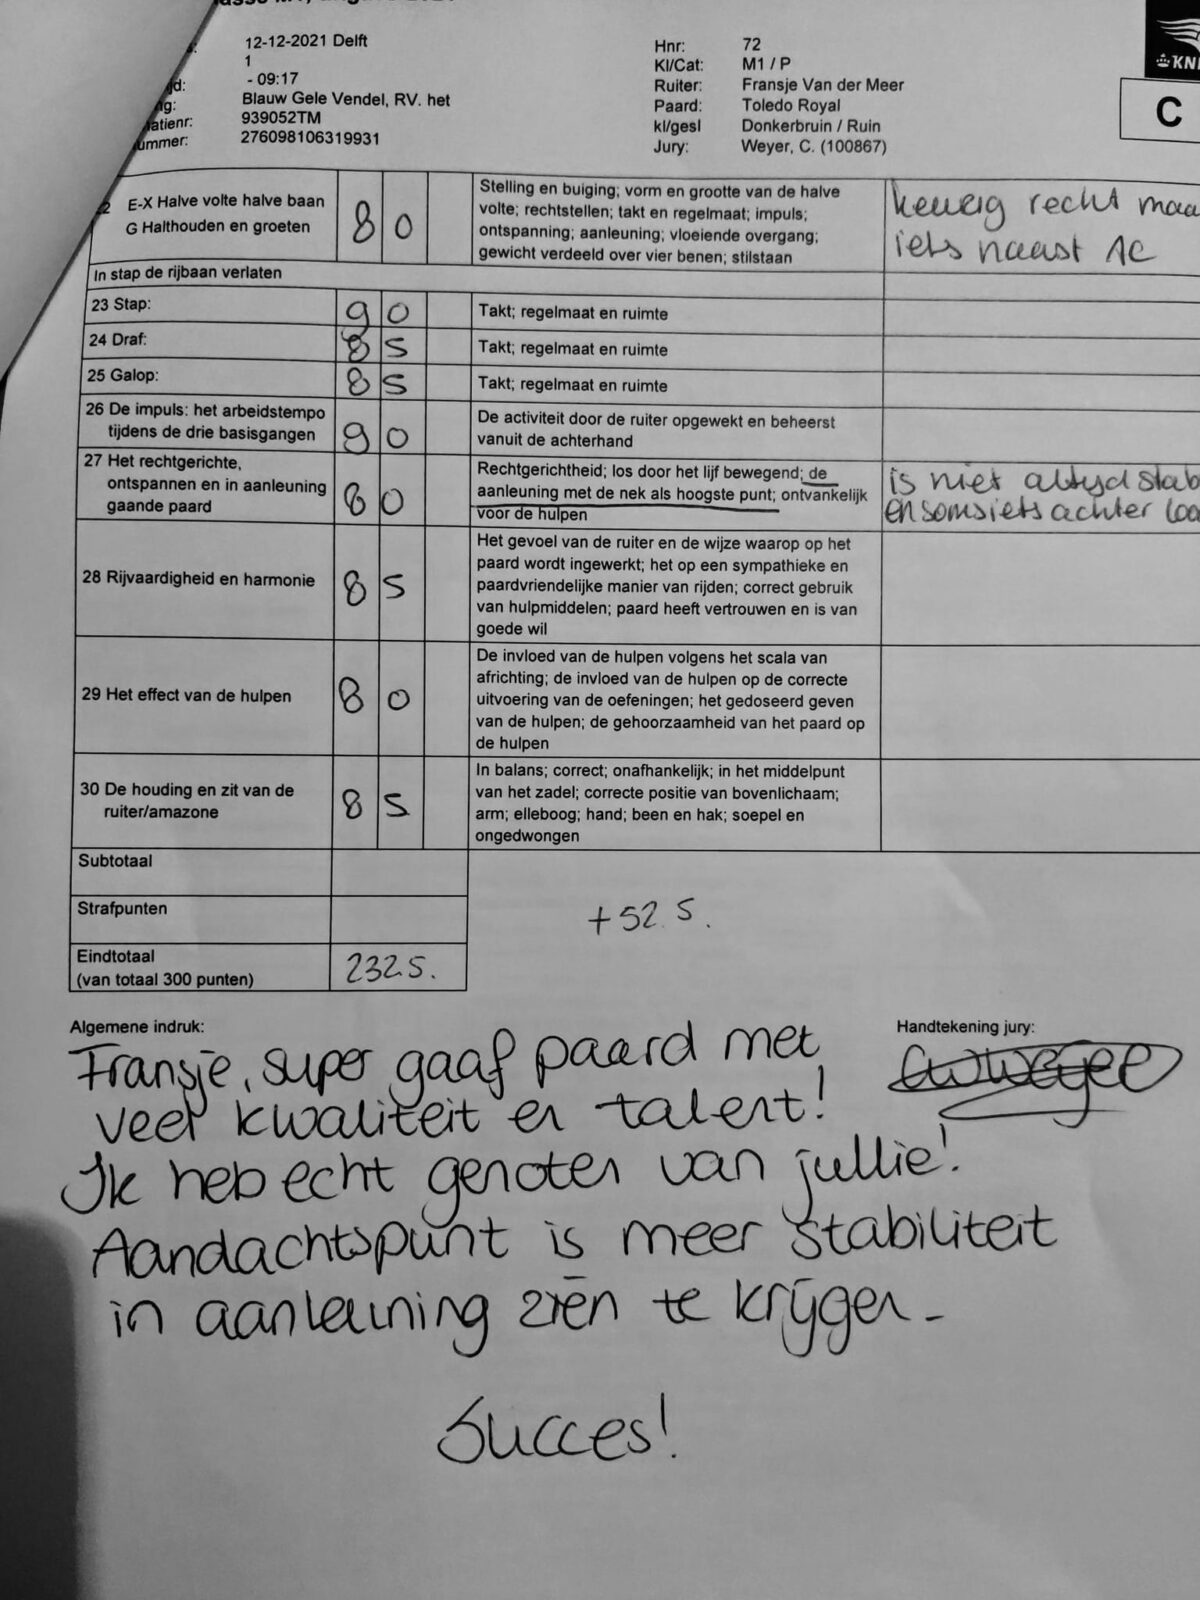 12-12-2021 Delft
1
- 09:17
Blauw Gele Vendel, RV. het
939052TM
276098106319931
Hnr: 72
Kl/Cat: M1 / P
Ruiter: Fransje Van der Meer
Paard: Toledo Royal
kl/gesl Donkerbruin / Ruin
Jury: Weyer, C. (100867)
C
E-X Halve volte halve baan
G Halthouden en groeten
8 0
Stelling en buiging; vorm en grootte van de halve
volte; rechtstellen; takt en regelmaat; impuls;
ontspanning; aanleuning; vloeiende overgang;
gewicht verdeeld over vier benen; stilstaan
keurig recht
iets naast AC
In stap de rijbaan verlaten
23 Stap: 9 0 Takt; regelmaat en ruimte
24 Draf: 8 5 Takt; regelmaat en ruimte
25 Galop: 8 5 Takt; regelmaat en ruimte
26 De impuls: het arbeidstempo
tijdens de drie basisgangen
9 0
De activiteit door de ruiter opgewekt en beheerst
vanuit de achterhand
27 Het rechtgerichte,
ontspannen en in aanleuning
gaande paard
8 0
Rechtgerichtheid; los door het lijf bewegend; de
aanleuning met de nek als hoogste punt; ontvankelijk
voor de hulpen
is niet altijd
en soms iets achter
28 Rijvaardigheid en harmonie
8 5
Het gevoel van de ruiter en de wijze waarop op het
paard wordt ingewerkt; het op een sympathieke en
paardvriendelijke manier van rijden; correct gebruik
van hulpmiddelen; paard heeft vertrouwen en is van
goede wil
29 Het effect van de hulpen
8 0
De invloed van de hulpen volgens het scala van
africhting; de invloed van de hulpen op de correcte
uitvoering van de oefeningen; het gedoseerd geven
van de hulpen; de gehoorzaamheid van het paard op
de hulpen
30 De houding en zit van de
ruiter/amazone
8 5
In balans; correct; onafhankelijk; in het middelpunt
van het zadel; correcte positie van bovenlichaam;
arm; elleboog; hand; been en hak; soepel en
ongedwongen
Subtotaal
Strafpunten
+52.5.
Eindtotaal
(van totaal 300 punten)
232.5.
Algemene indruk:
Handtekening jury:
Fransje, super gaaf paard met
veel kwaliteit en talent!
Ik heb echt genoten van jullie!
Aandachtspunt is meer stabiliteit
in aanleuning zien te krijgen-
Succes!